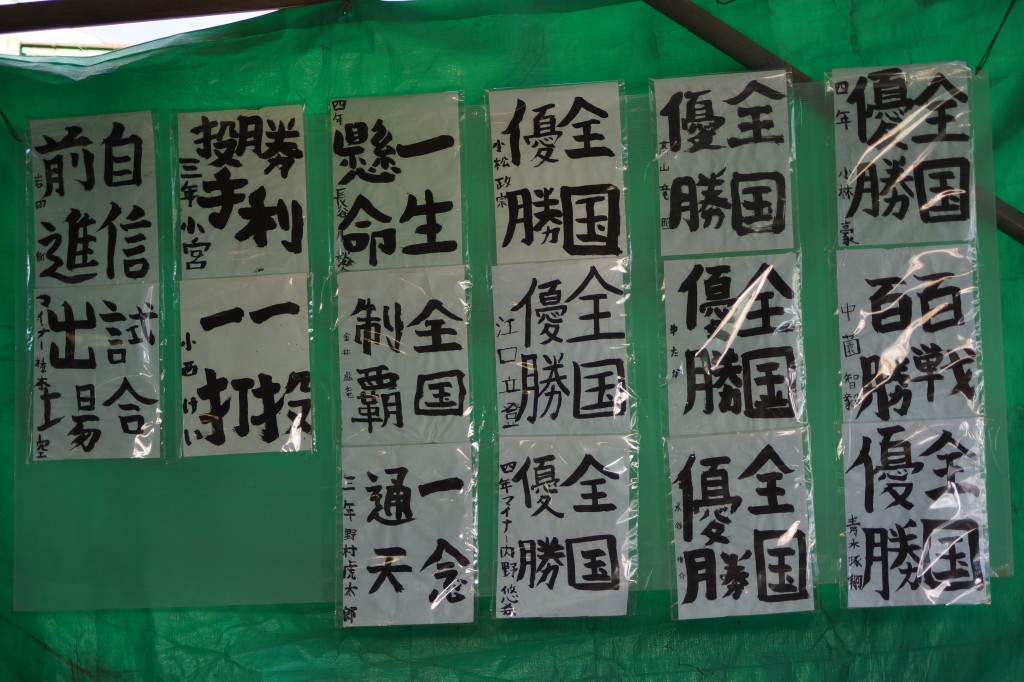 全国
優勝
四年 小林 豪
百戦
百勝
中薗 智毅
全国
優勝
青木
全国
優勝
山 竜
全国
優勝
全国
優勝
水谷
全国
優勝
小松 政宗
全国
優勝
江口 立登
全国
優勝
四年マイナー 内野 悠
一生
懸命
四年 長谷川
全国
制覇
一念
通天
三年 野村虎太郎
勝利
投手
三年 小宮
一投
一打
小西 けい
自信
前進
岩田
試合
出場
マイナー 橋本 空